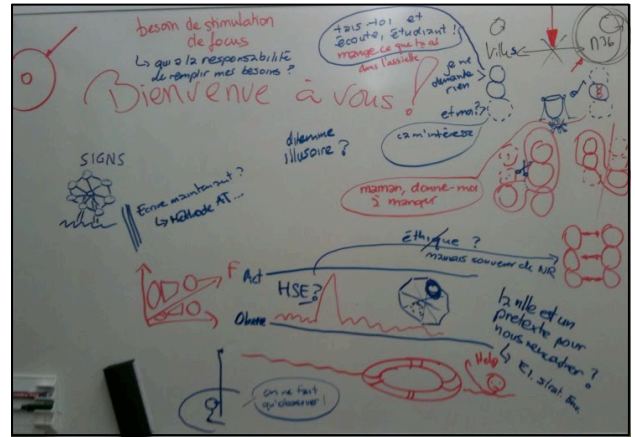 besoin de stimulation
de focus
↳ qui a la responsabilité
de remplir mes besoins ?
Bienvenue à vous !
tais-toi et
écoute, étudiant !
mange ce que tu as
dans l'assiette
je ne
demande
rien
et moi ?
ça m'intéresse
Villes
N36
maman, donne-moi
à manger
dilemme
illusoire ?
SIGNS
Écrire maintenant ?
↳ Méthode AT...
éthique ?
mauvais souvenir de NR
F
Act
HSE ?
Observe
la ville est un
prétexte pour
nous rencontrer ?
↳ EI, strat.
Help
on ne fait
qu'observer !